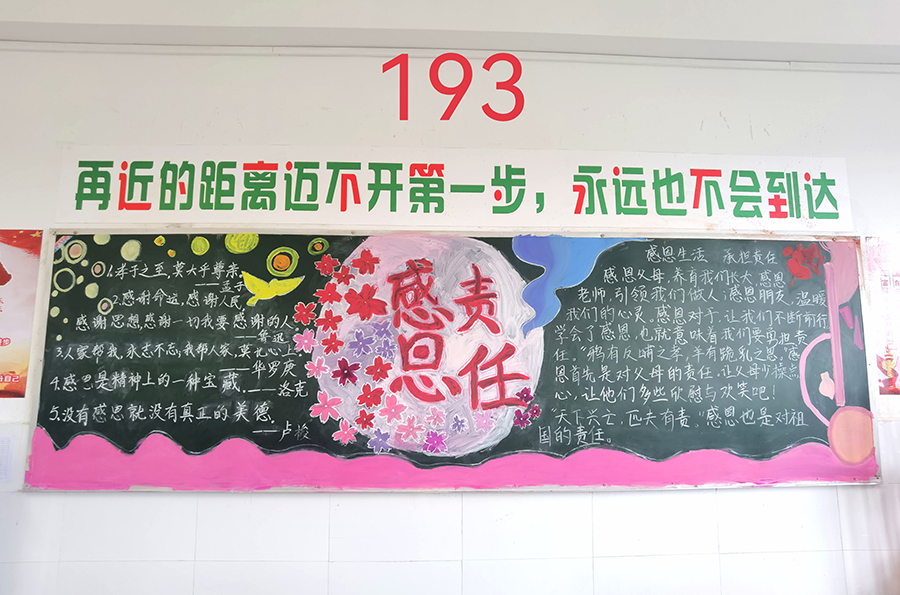 193
再近的距离迈不开第一步，永远也不会到达
1.孝子之至,莫大乎尊亲
——孟子
2.感谢命运,感谢人民,
感谢思想,感谢一切我要感谢的人。
——鲁迅
3.人家帮我,永志不忘,我帮人家,莫记心上
——华罗庚
4.感恩是精神上的一种宝藏——洛克
5.没有感恩就没有真正的美德.
——卢梭
感恩
责任
感恩生活 承担责任
感恩父母,养育我们长大;感恩
老师,引领我们做人;感恩朋友,温暖
我们的心灵,感恩对手,让我们不断前行
学会了感恩,也就意味着我们要负担责
任。"鸦有反哺之孝,羊有跪乳之恩."感
恩首先是对父母的责任,让父母少操点
心,让他们多些欣慰与欢笑吧!
"天下兴亡,匹夫有责",感恩也是对祖
国的责任。